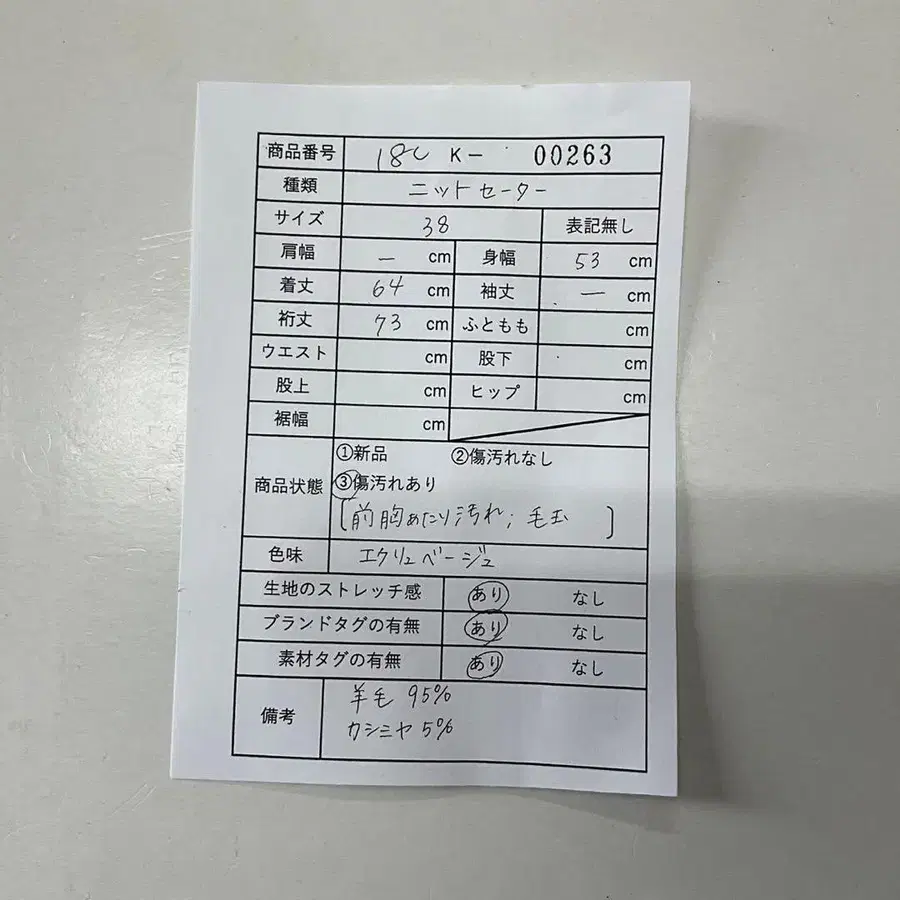 商品番号 18C K- 00263
種類 ニットセーター
サイズ 38 表記無し
肩幅 - cm 身幅 53 cm
着丈 64 cm 袖丈 - cm
裄丈 73 cm ふともも cm
ウエスト cm 股下 cm
股上 cm ヒップ cm
裾幅 cm
商品状態 ①新品 ②傷汚れなし
③傷汚れあり
[前胸あたり汚れ; 毛玉]
色味 エクリュベージュ
生地のストレッチ感 あり なし
ブランドタグの有無 あり なし
素材タグの有無 あり なし
備考 羊毛 95%
カシミヤ 5%